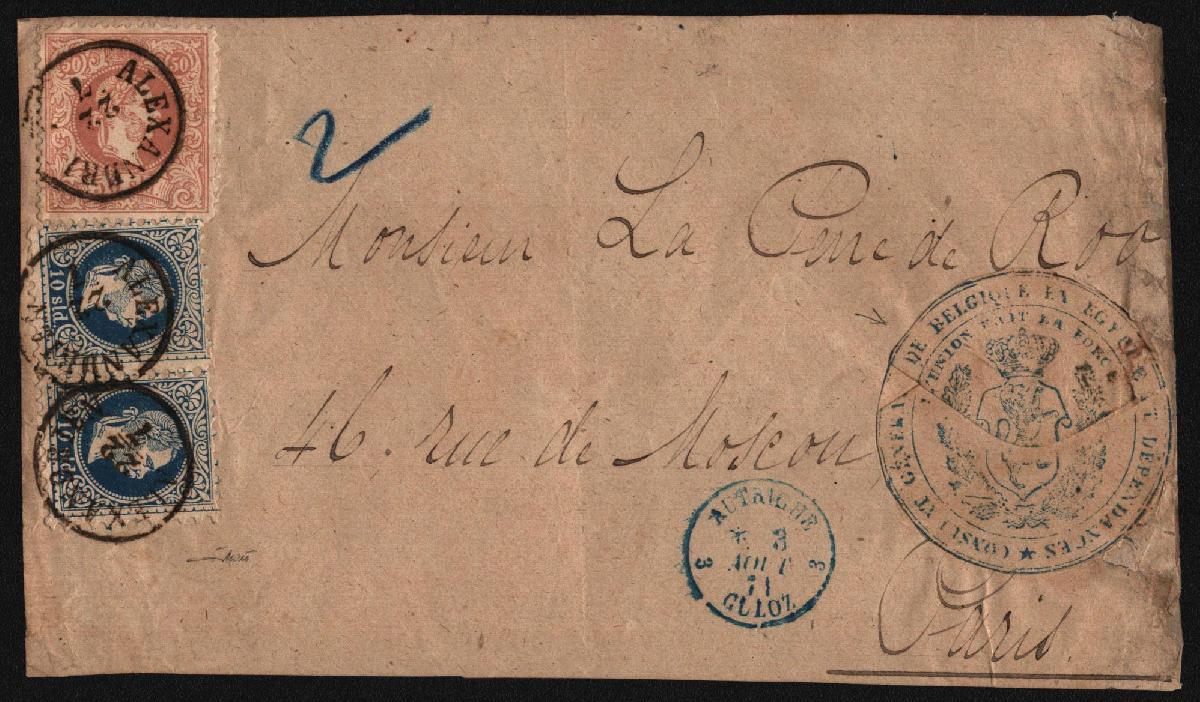 50 50
ALEXANDRI
22
7
10 sld
ALEXANDRIEN
10 sld
ALEXANDRIEN
22
7
2
Monsieur La Cme de Roo
46. rue de Moscou
Paris.
CONSULAT GÉNÉRAL DE BELGIQUE EN EGYPTE ET DÉPENDANCES
L'UNION FAIT LA FORCE
AUTRICHE
3 3
AOUT
71
CULOZ
3 3